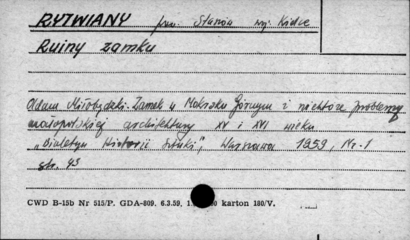 RYTWIANY pow. Staszów woj. Kielce
Ruiny zamku
Adam Miłobędzki: Zamek w Mokrsku Górnym i niektóre problemy
małopolskiej architektury XV i XVI wieku
„Biuletyn Historii Sztuki”, Warszawa 1959, Nr. 1
str. 43
CWD B-15b Nr 515/P. GDA-809. 6.3.59, karton 180/V.